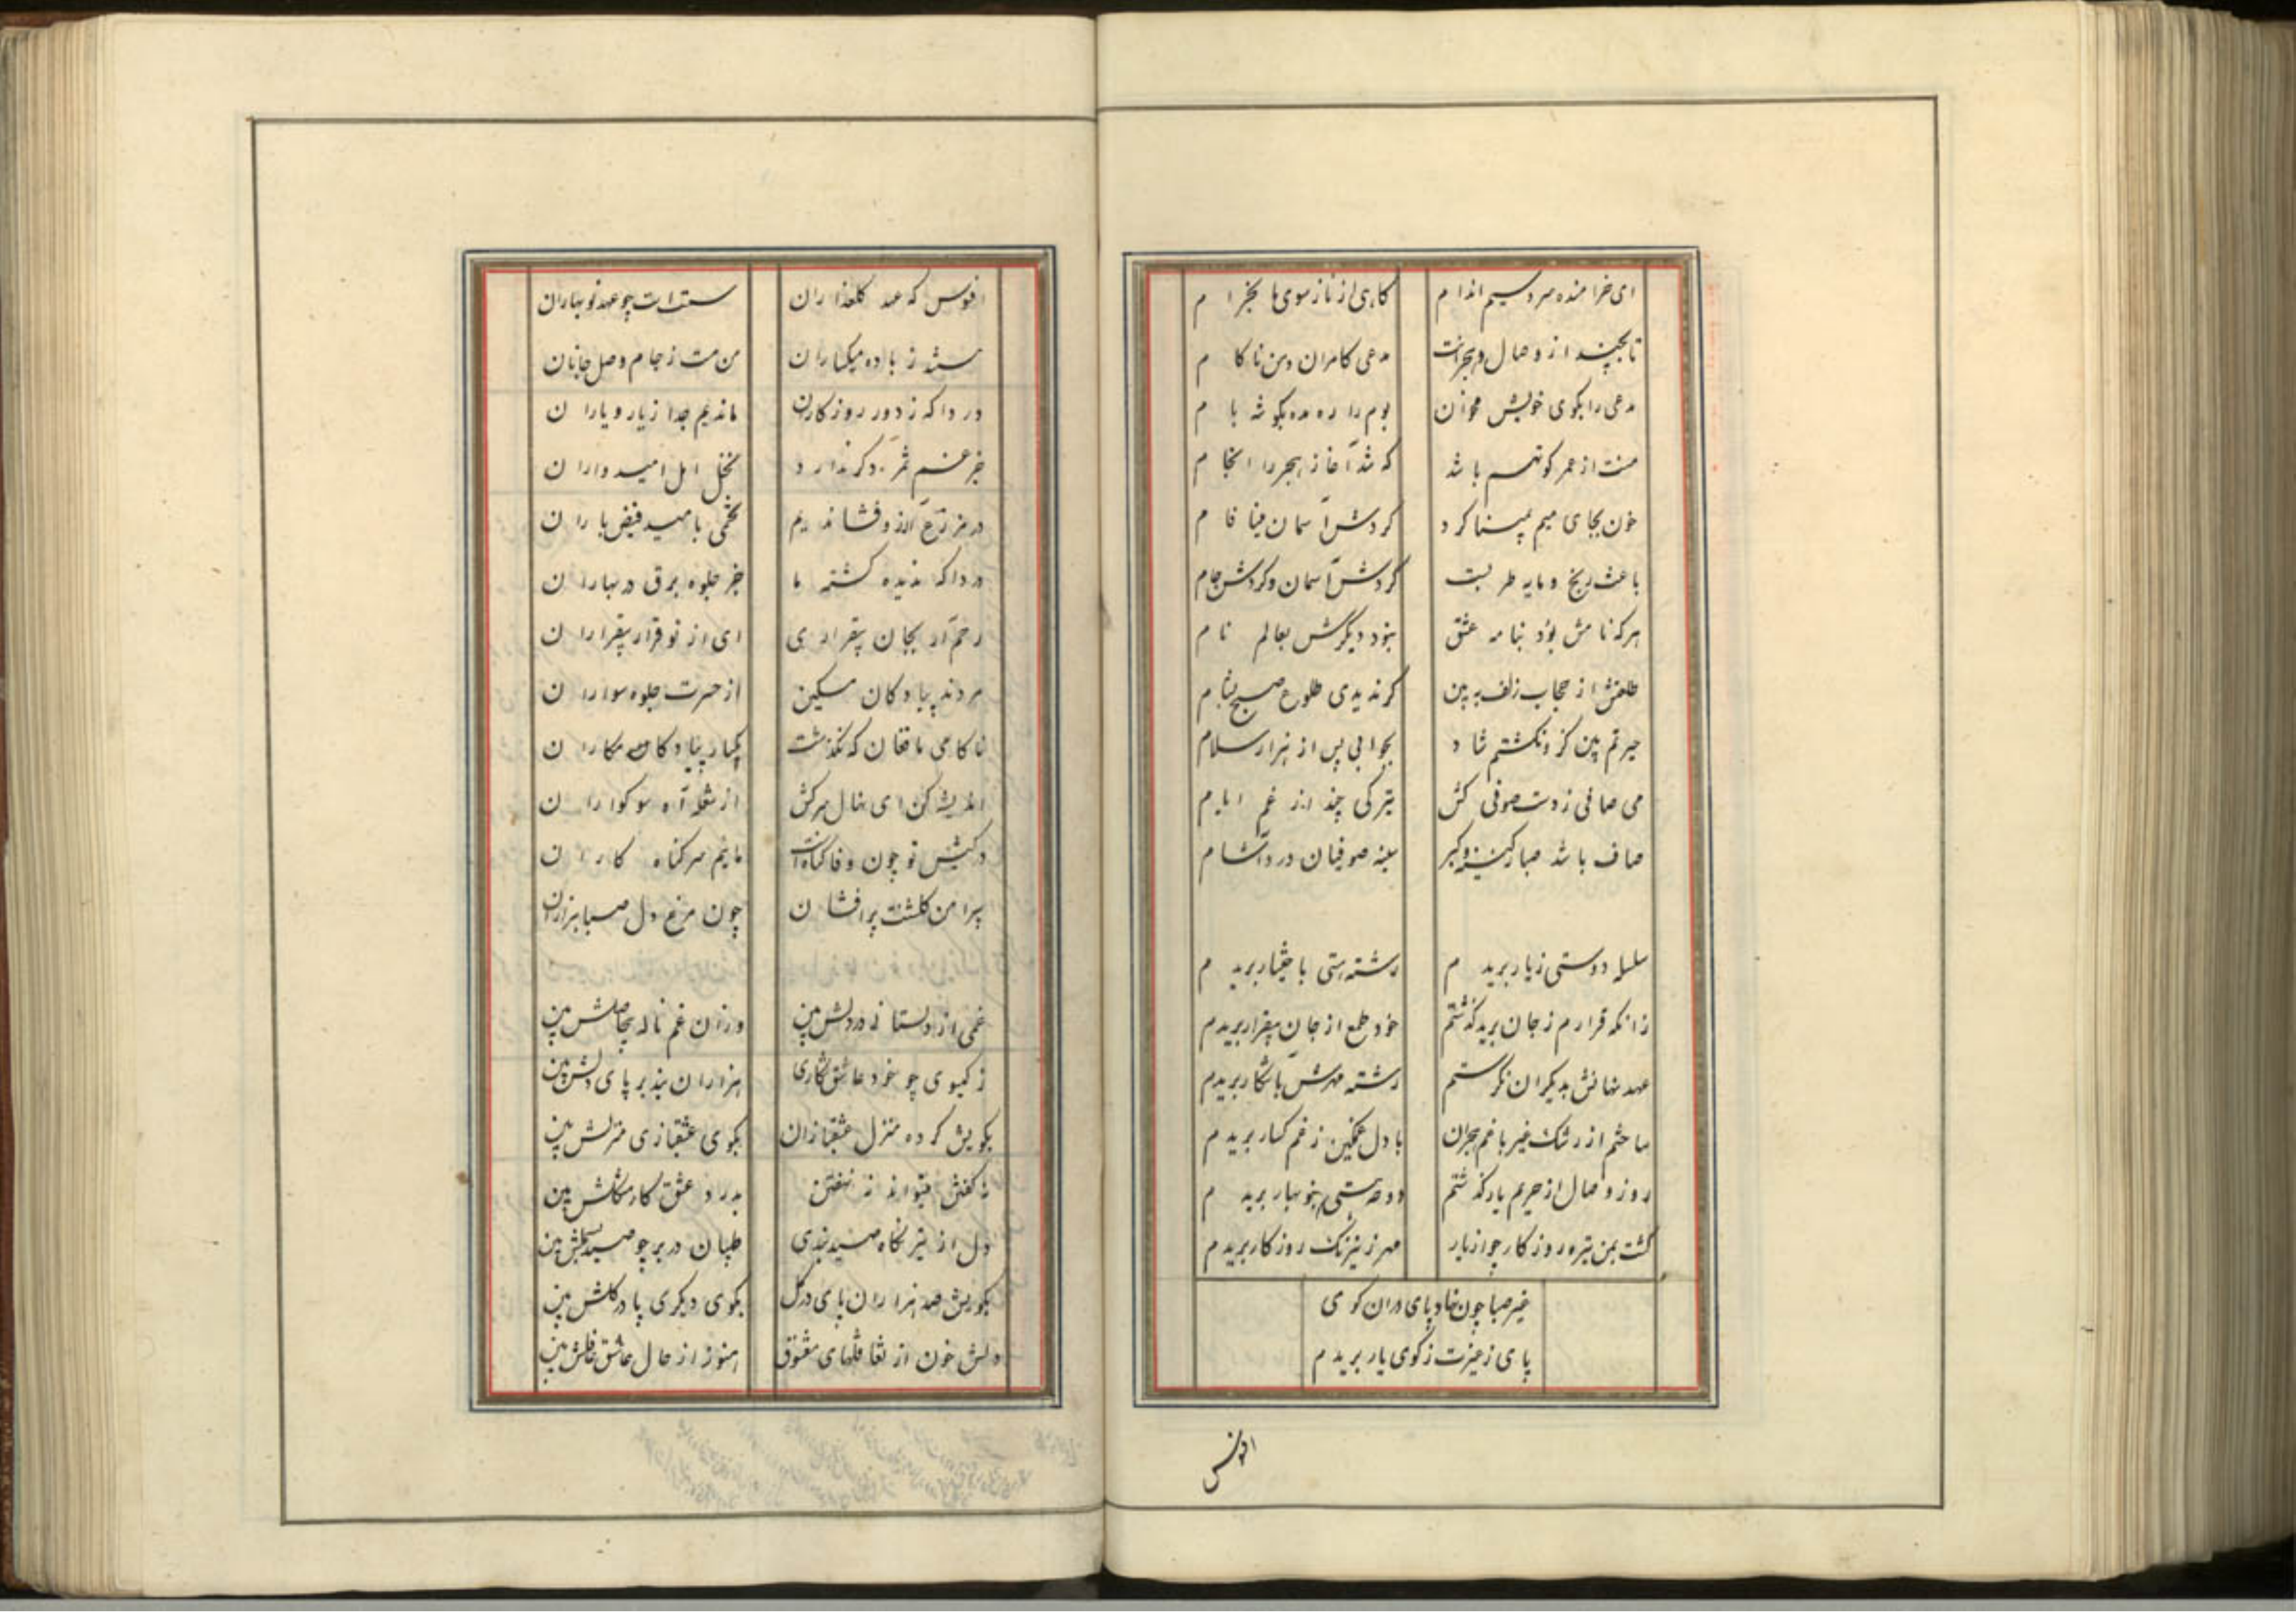 ای خرامنده سرو سیم اندام
کاهی از ناز سوی ما بخرام
تا بچند از وصال و هجرانت
مدعی کامران و من ناکام
مدعی را بکوی خویش مخوان
بوم را ره مده بکوشه بام
منت از عمر کوتهم باشد
که شد آغاز هجر را انجام
خون بجای میم بمینا کرد
کردش آسمان مینا فام
باعث رنج و مایه طربست
کردش آسمان و کردش جام
هرکه نامش بود بنامه عشق
نبود دیگرش بعالم نام
طلعتش از حجاب زلف به بین
کر ندیدی طلوع صبح بشام
حیرتم بین کز و نکشتم شاد
بجوابی پس از هزار سلام
می صافی ز دست صوفی کش
تیرکی چند از غم ایام
صاف باشد صبا ز کینه و کبر
سینه صوفیان درد آشام
سلسله دوستی ز یار بریدم
رشته هستی باختیار بریدم
زانکه قرارم ز جان برید کذشتم
خود طمع از جان بیقرار بریدم
عهد نهانش بدیکران نکرستم
رشته مهرش باشکار بریدم
ساختم از رشک غیر با غم هجران
با دل غمکین ز غمکسار بریدم
روز وصال از حریم یار کذشتم
دوحه هستی بنوبهار بریدم
کشت بمن تیره روزکار چو از یار
مهر ز نیرنک روزکار بریدم
غیر صبا چون نهاد پای دران کوی
پای ز غیرت ز کوی یار بریدم
افسوس
افسوس که عهد کلعذاران
سست است چو عهد نوبهاران
مستند ز باده میکساران
من مست ز جام وصل جانان
دردا که ز دور روزکاران
ماندیم جدا ز یار و یاران
جز غم ثمر دکر ندارد
نخل امل امیدواران
در مزرع آرزو فشاندیم
تخمی بامید فیض باران
دردا که ندیده کشته ما
جز جلوه برق در بهاران
رحم آر بجان بیقراری
ای از تو قرار بیقراران
مردند پیادکان مسکین
از حسرت جلوه سواران
ناکامی ما فغان که نکذشت
یکبار بیاد کامکاران
اندیشه کن ای نهال سرکش
از شعله آه سوکواران
در کیش تو چون وفا کناهست
مائیم سر کناه کاران
پیرامن کلشنت پرافشان
چون مرغ دل صبا هزاران
غمی از دلستانی در دلش بین
وزان غم ناله بیحاصلش بین
ز کیسوی چو خود عاشق نکاری
هزاران بند بر پای دلش بین
بکویش کرده منزل عشقبازان
بکوی عشقبازی منزلش بین
نه کفتن میتواند نه نهفتن
بدرد عشق کار مشکلش بین
دل از تیر نکاه صیدبندی
طپان در بر چو صید بسملش بین
بکویش صد هزاران پای در کل
بکوی دیکری پا در کلش بین
دلش خون از تغافلهای معشوق
هنوز از حال عاشق غافلش بین